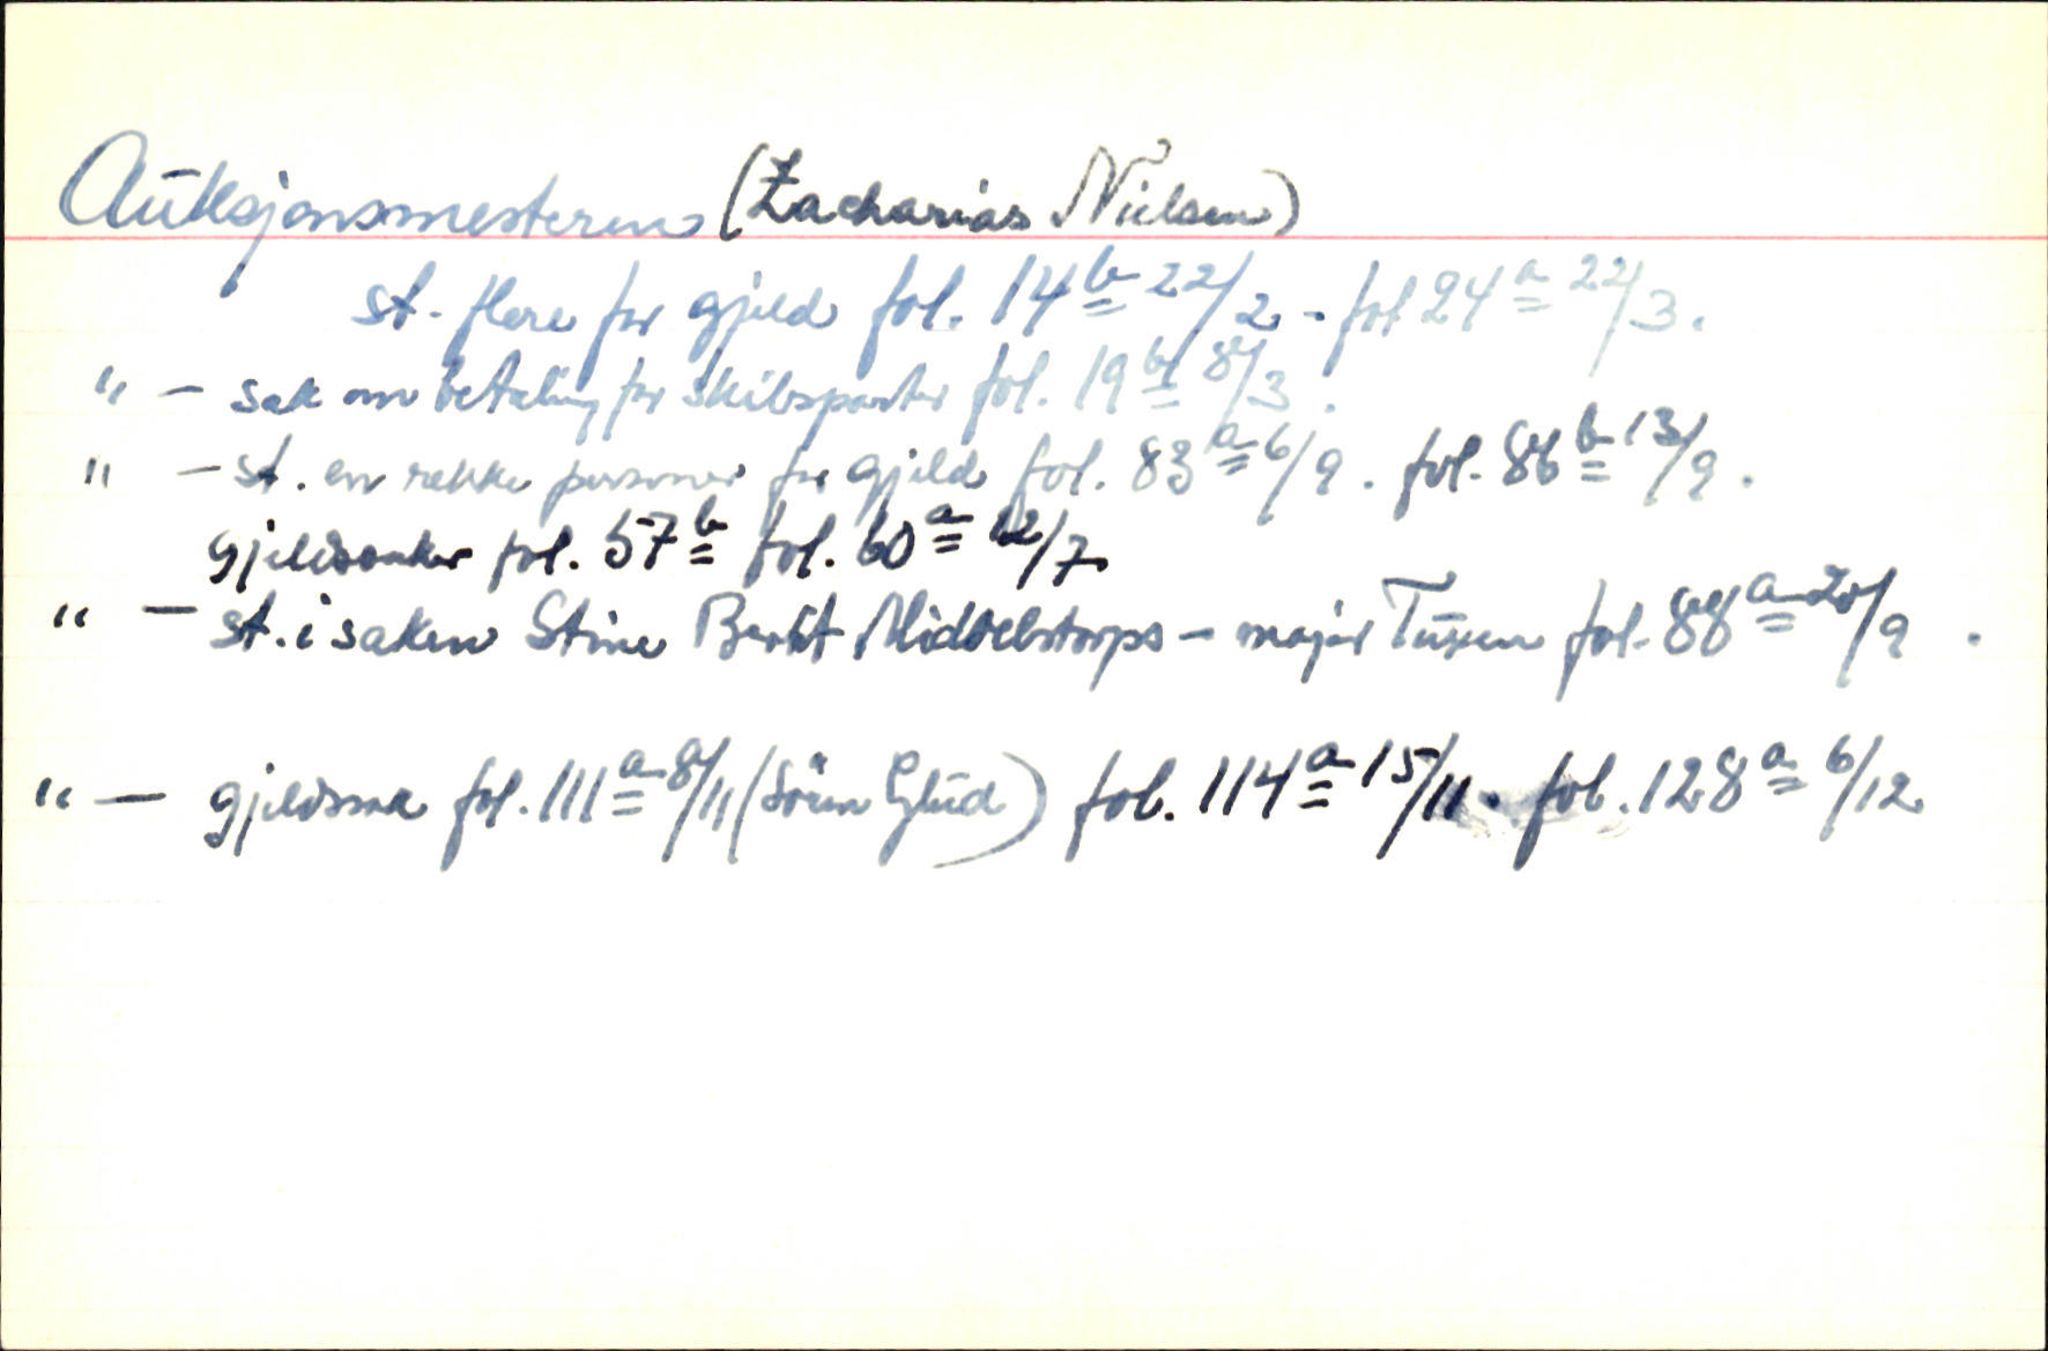 Auksjonsmesteren (Zacharias Nielsen)
st. flere for gjeld fol. 14b 22/2 - fol 24a 22/3.
" - sak om betaling for skibsparter fol. 19b 8/3.
" - st. en rekke personer for gjeld fol. 83a 6/9. fol. 86b 13/9.
gjeldssaker fol. 57b fol. 60a 12/7
" - st. i saken Stine Middelstorps - major Tuxen fol. 88a 20/9.
" - gjeldssak fol. 111a 8/11 (Sören Glud) fol. 114a 15/11. fol. 128a 6/12